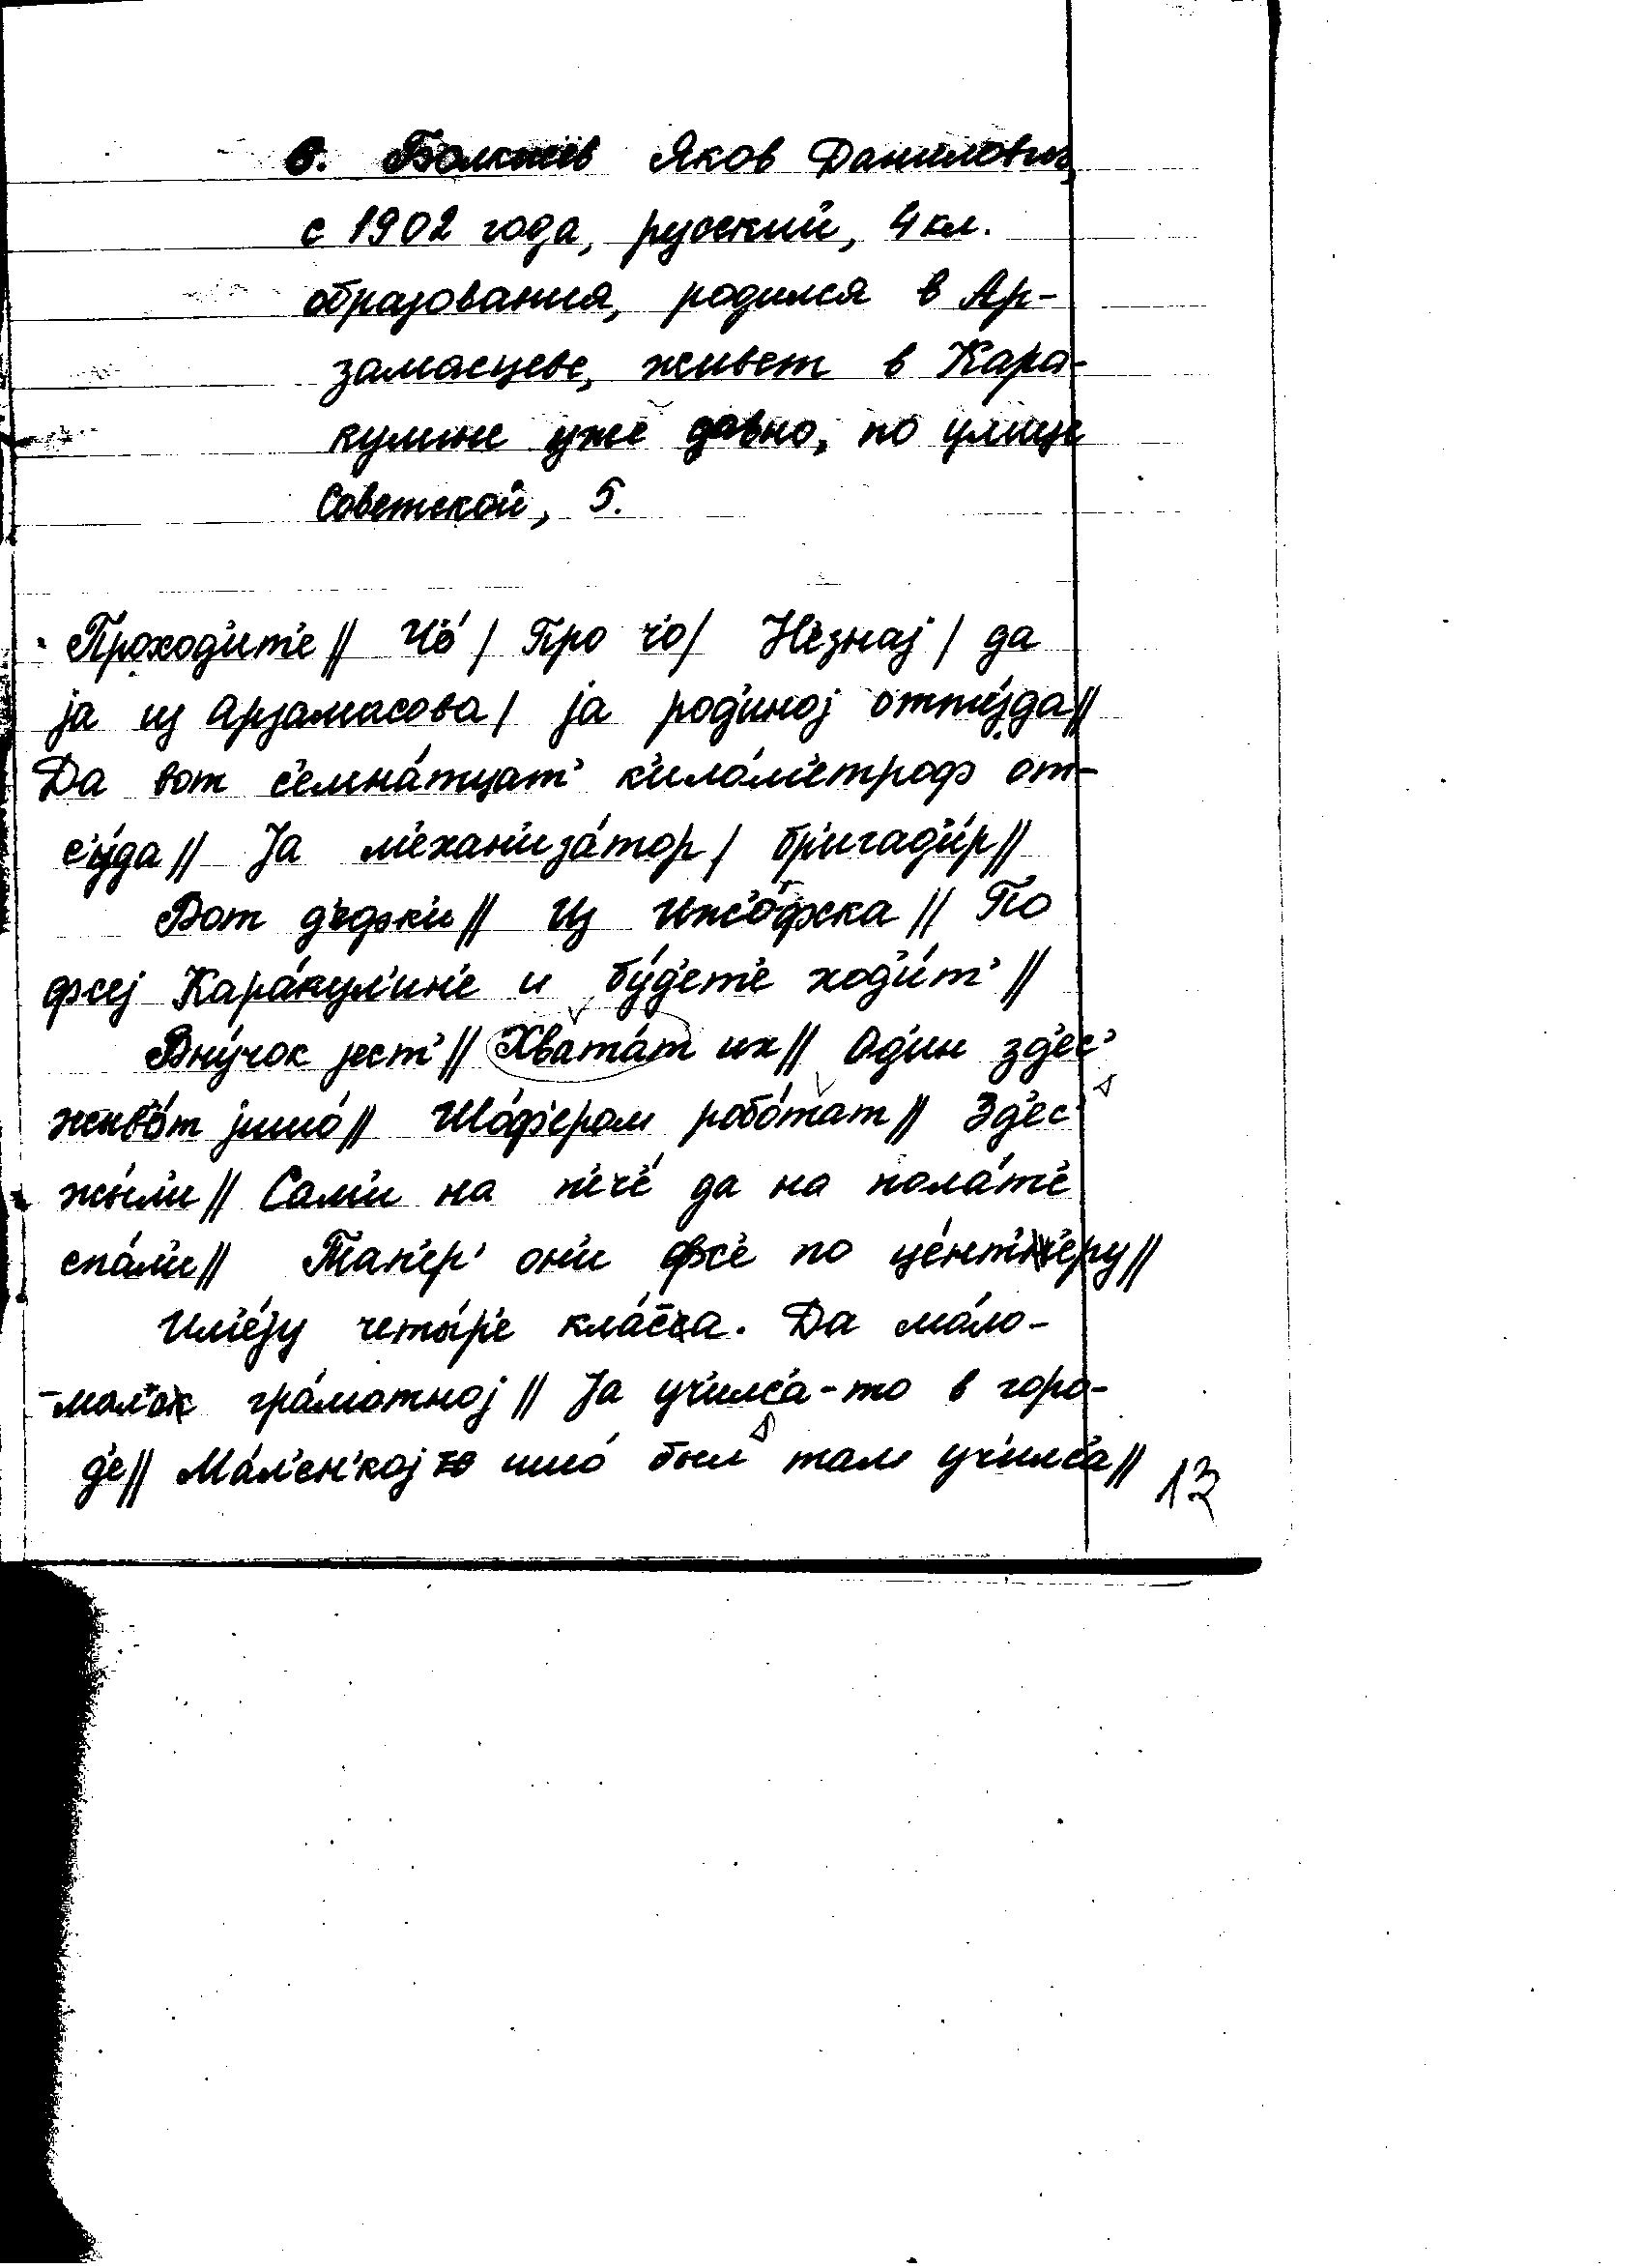 6. Яков Данилович,
с 1902 года, русский, 4 кл.
образования, родился в Ар-
замасцеве, живет в Кара-
кулине уже давно, по улице
Советской, 5.
Проход'ит'е // Ч'о́ / Про ч'о / Н'е знај / да
ја из Арзамасова / ја род'иној //
Да вот с'емна́тцат' к'ило́м'етроф от-
с'у́да // Ја м'ехан'иза́тор / бр'игад'и́р //
Вот // Из Иж'о́фска // По
фсеј Кара́кул'ин'е и бу́д'ет'е ход'и́т' //
Вну́чок јест' // Хвата́т их // Од'ин зд'ес'
жыв'о́т јишо́ // Шо́ф'ером робо́тат // Зд'ес'
жы́л'и // Сам'и на п'еч'е́ да на пола́т'е
спа́л'и // Т'ап'ер' он'и фс'е по це́нт'н'еру //
Им'е́ју четы́р'е кла́са. Да ма́ло-
-мал'ок гра́мотној // Ја уч'илс'а-то в горо-
д'е // Ма́л'ен'кој ишо́ был там уч'илс'а //
13